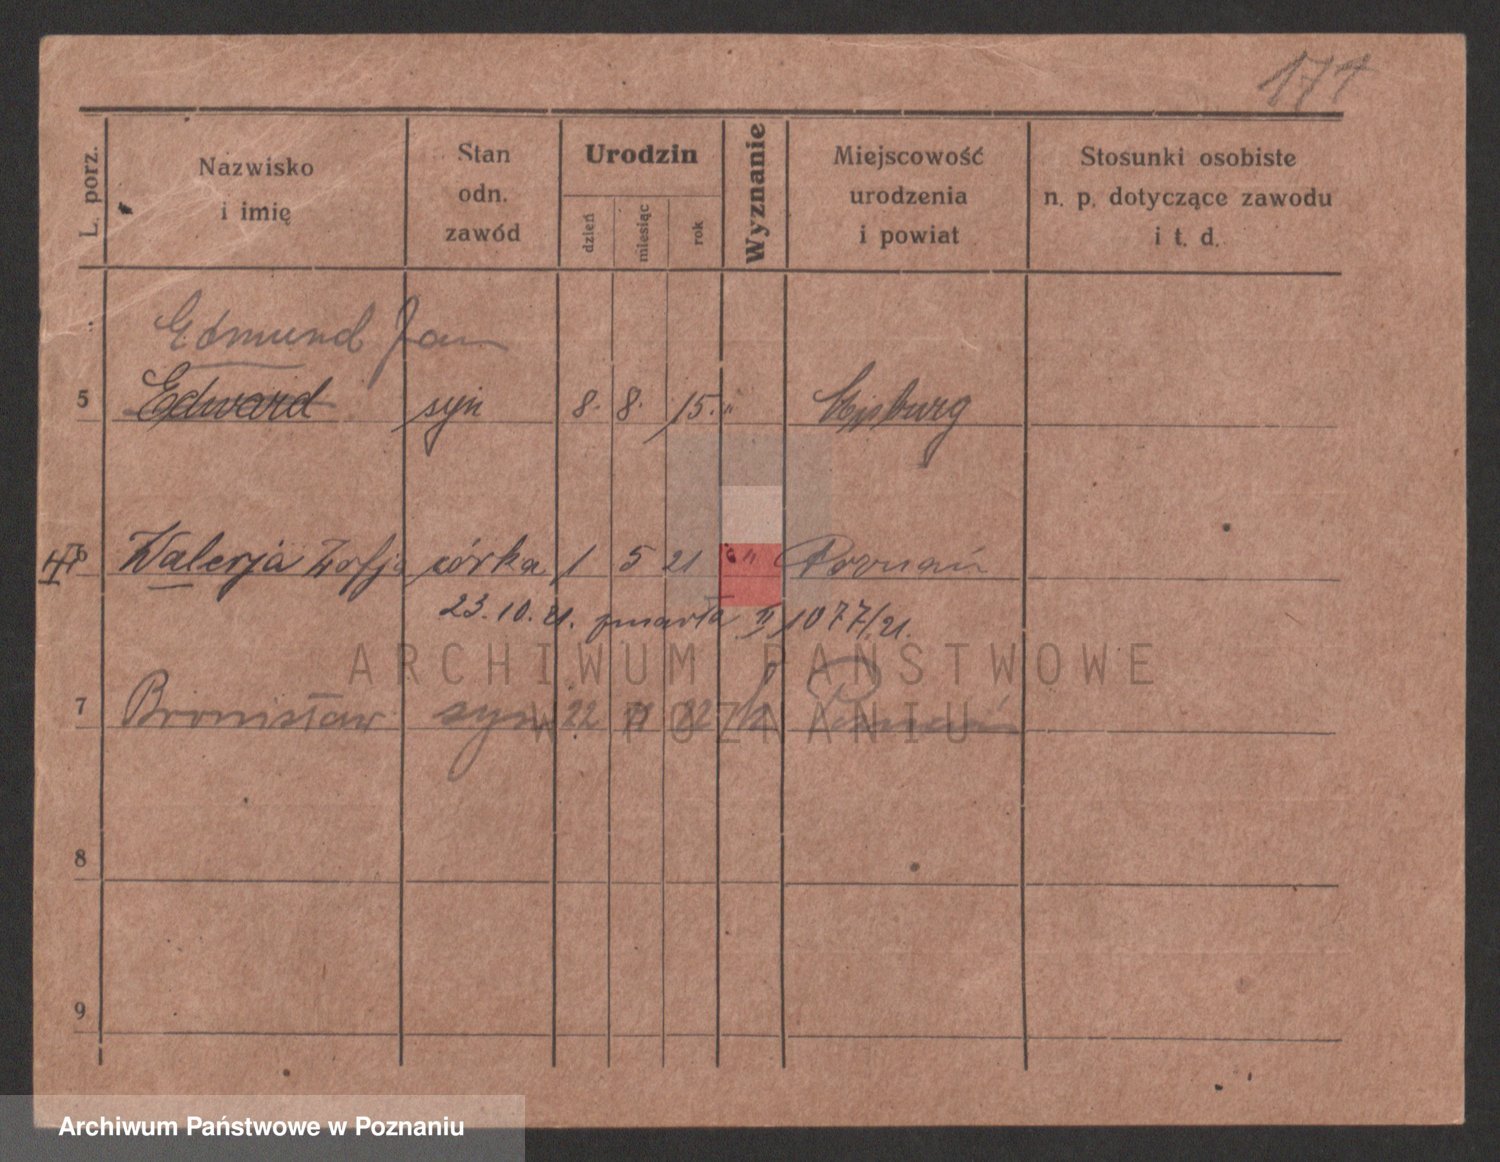 171
L. porz.
Nazwisko
i imię
Stan
odn.
zawód
Urodzin
dzień
miesiąc
rok
Wyznanie
Miejscowość
urodzenia
i powiat
Stosunki osobiste
n. p. dotyczące zawodu
i t. d.
Edmund Jan
5 Edward syn 8. 8. 15. "
6 Walerja Zofja córka 1 5 21 " Poznań
23.10.21. zmarła II 1077/21.
ARCHIWUM PAŃSTWOWE
W POZNANIU
7 Bronisław syn 22 22 Poznań
8
9
Archiwum Państwowe w Poznaniu